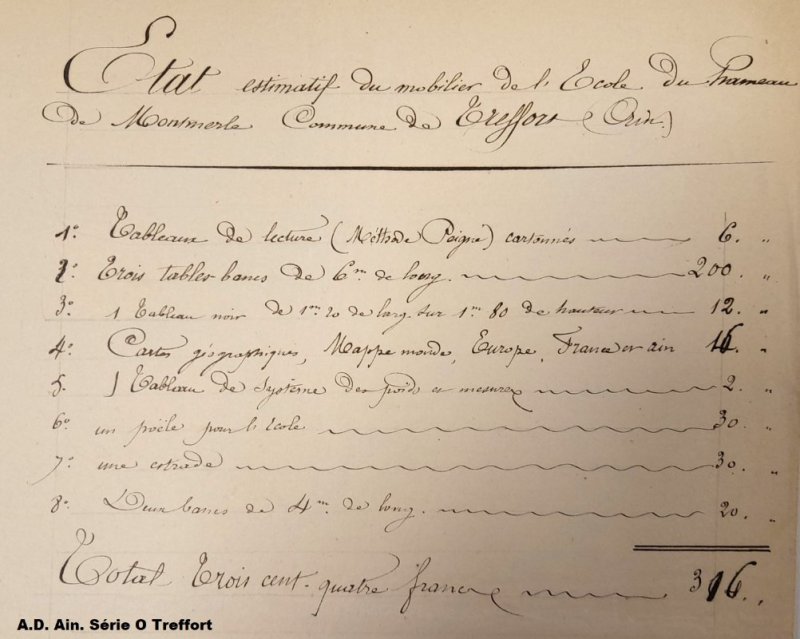 Etat estimatif du mobilier de l'Ecole du hameau
de Montmerle Commune de Treffort (Ain.)
1° Tableaux de lecture (Méthode Peigné) cartonnés 6. "
2° Trois tables-bancs de 6m de long. 200 "
3° 1 Tableau noir de 1m 20 de larg. sur 1m 80 de hauteur 12. "
4° Cartes géographiques, Mappe monde, Europe, France et ain 16. "
5. 1 Tableau de système des poids et mesures 2. "
6° un poële pour l'école 30. "
7° une estrade 30. "
8° Deux bancs de 4m. de long. 20. "
Total Trois cent. quatre francs 316. "
A.D. Ain. Série O Treffort